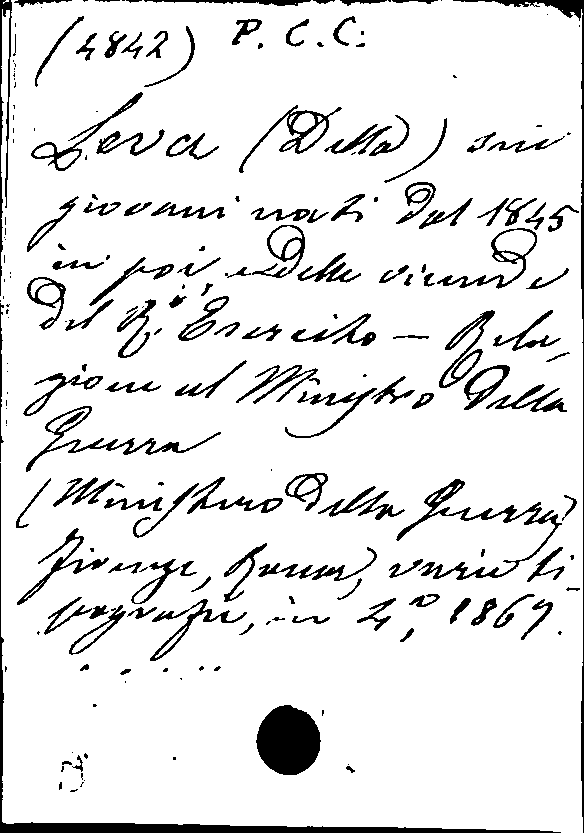 (4842) P. C. C.
Leva (Della) sui
giovani nati dal 1845
in poi, e delle vicende
del R.° Esercito — Rela-
zione al Ministro della
Guerra
(Ministero della Guerra)
Firenze, Roma, varie ti-
pografie, in 4°, 1867.
.....